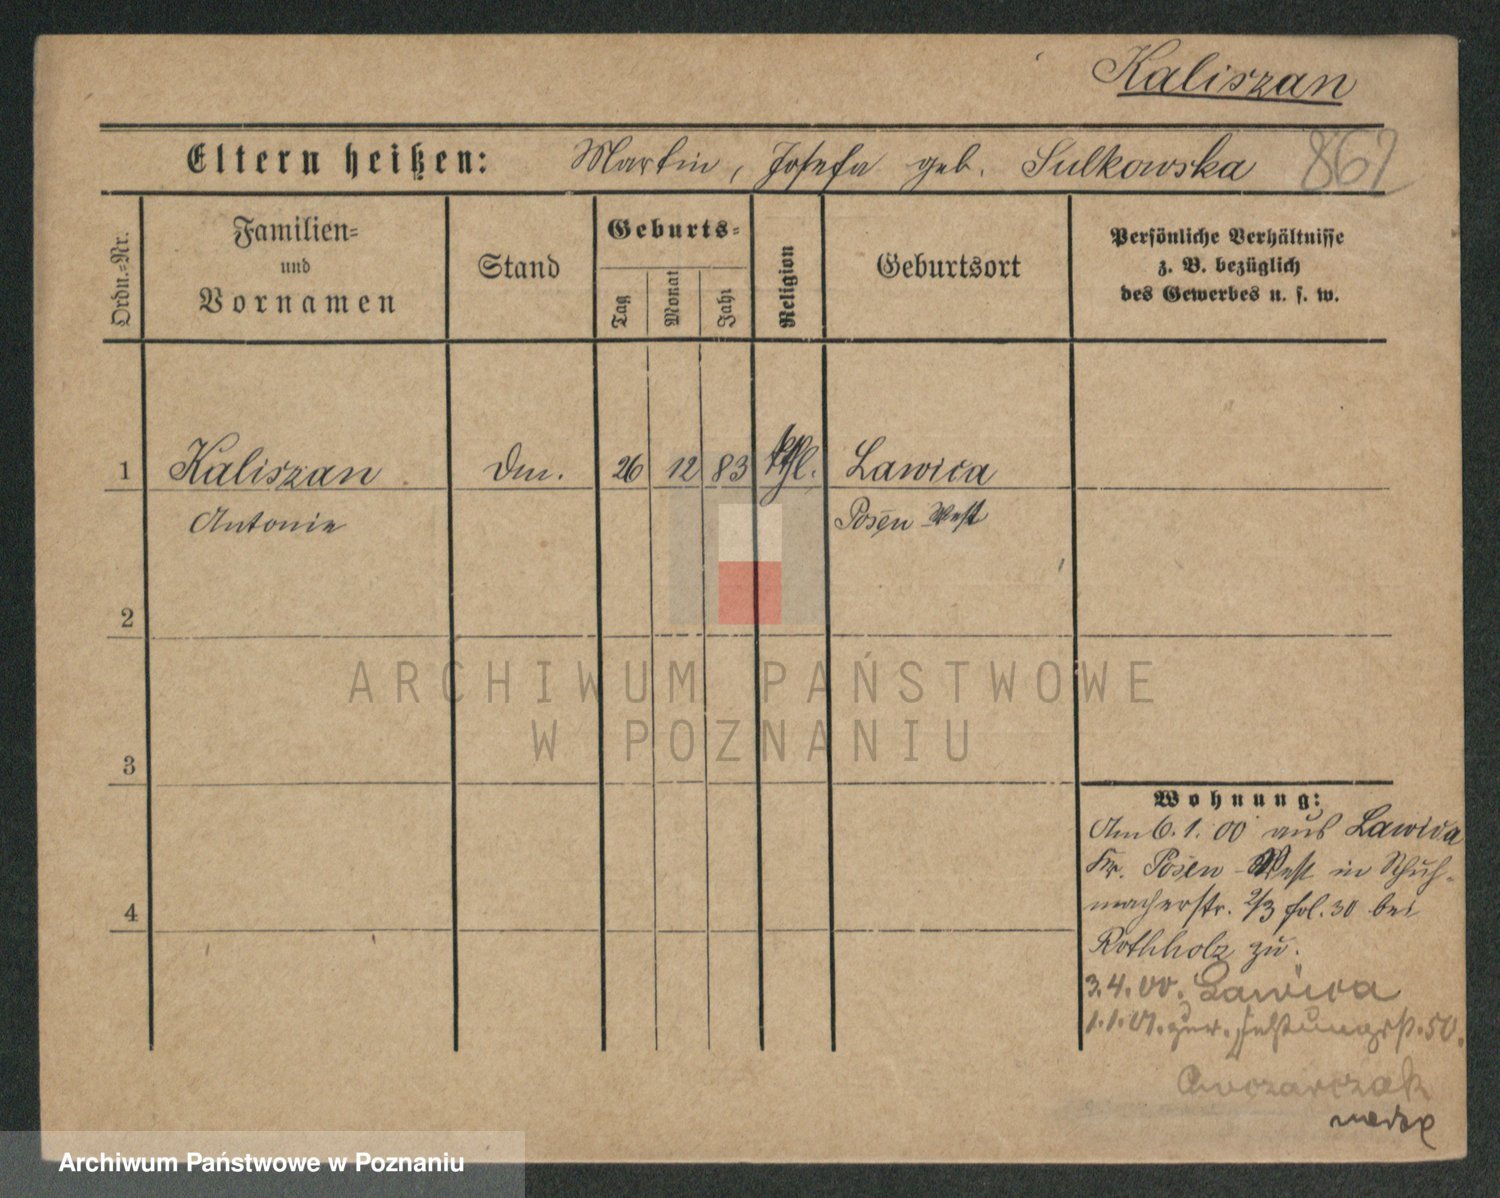 Kaliszan
Eltern heißen: Martin, Josefa geb. Sulkowska 862
Ordn.-Nr.
Familien-
und
Vornamen
Stand
Geburts-
Tag
Monat
Jahr
Religion
Geburtsort
Persönliche Verhältnisse
z. B. bezüglich
des Gewerbes u. s. w.
1 Kaliszan Dm. 26 12 83 kthl. Lawica
Antonie Posen West
2
3
4
Wohnung:
Am 6. 1. 00 aus Lawica
Kr. Posen-West in Schuh-
macherstr. 2/3 fol. 30 bei
Rothholz zu.
3.4.00. Lawica
1.1.01. zur. Festungsst. 50.
Owczarczak
ARCHIWUM PAŃSTWOWE
W POZNANIU
Archiwum Państwowe w Poznaniu